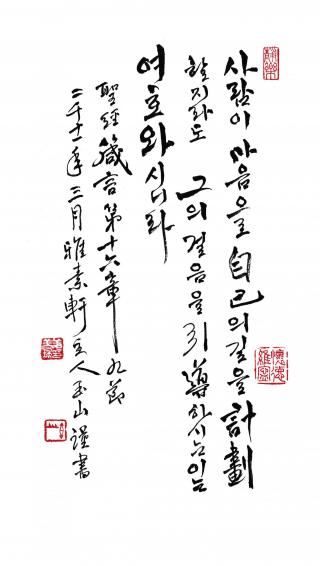 사람이 마음으로 自己의 길을 計劃
할지라도 그의 걸음을 引導하시는 이는
여호와시니라
聖經 箴言 第十六章 九節
二千十一年 三月 雅素軒 主人 玉山 謹書